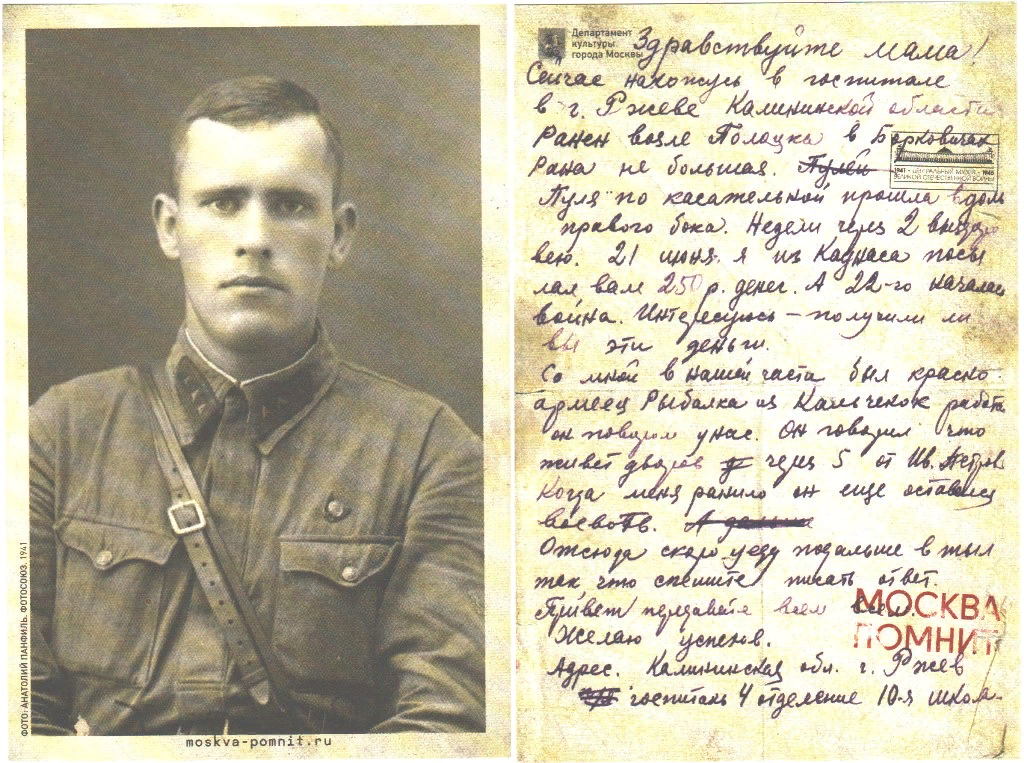 ФОТО: АНАТОЛИЙ ПАНФИЛЬ. ФОТОСОЮЗ. 1941
moskva-pomnit.ru
Департамент
культуры
города Москвы
Здравствуйте мама!
Сейчас нахожусь в госпитале
в г. Ржеве Калининской области
Ранен возле Полоцка в Борковичах
Рана не большая. Пулей
1941 - ЦЕНТРАЛЬНЫЙ МУЗЕЙ - 1945
ВЕЛИКОЙ ОТЕЧЕСТВЕННОЙ ВОЙНЫ
Пуля по касательной прошла вдоль
правого бока. Недели через 2 выздоро
вею. 21 июня я из Каунаса посы
лал вам 250 р. денег. А 22-го началась
война. Интересуюсь – получили ли
вы эти деньги.
Со мной в нашей части был красно
армеец Рыбалка из работал
он поваром у нас. Он говорил что
живет дворов через 5 от Ив.
Когда меня ранило он еще остался
воевать. А дальше
Отсюда скоро уеду подальше в тыл
так что спешите писать ответ.
Привет передавайте всем всем.
МОСКВА
ПОМНИТ
Желаю успехов.
Адрес. Калининская обл. г. Ржев
госпиталь 4 отделение 10-я школа